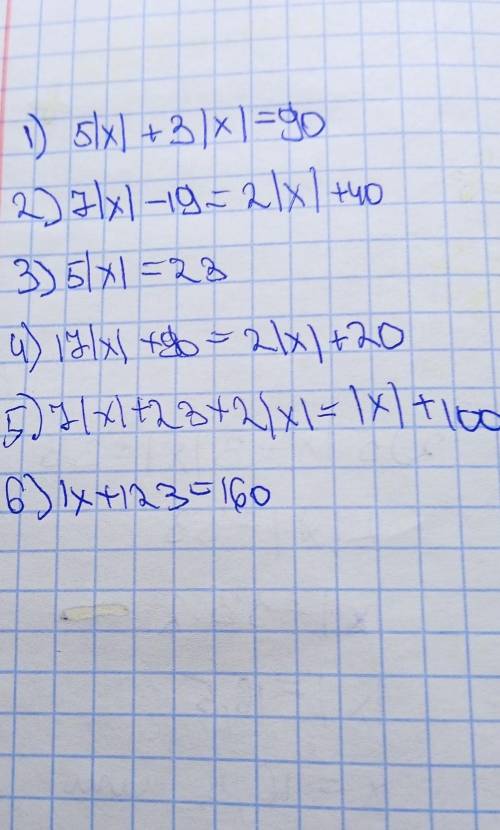 1) 5|x| + 3|x| = 90
2) 7|x| - 19 = 2|x| + 40
3) 5|x| = 23
4) 17|x| + 90 = 2|x| + 20
5) 7|x| + 23 + 2|x| = |x| + 100
6) |x + 123 = 160